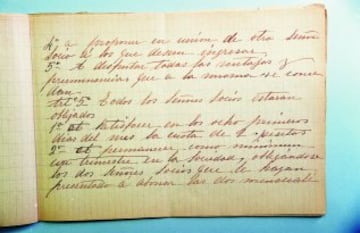 4º a proponer en union de otro Señor
Socio á los que deseen ingresar
5º A disfrutar todas las ventajas y
preeminencias que a la misma se conce
dan
Artº 5 Todos los Señores Socios estaran
obligados
1º A satisfacer en los ocho primeros
dias del mes la cuota de 2 pesetas
2º A permanecer como minimum
un trimestre en la Sociedad, obligandose
los dos Señores Socios que le hayan
presentado a abonar las dos mensuali